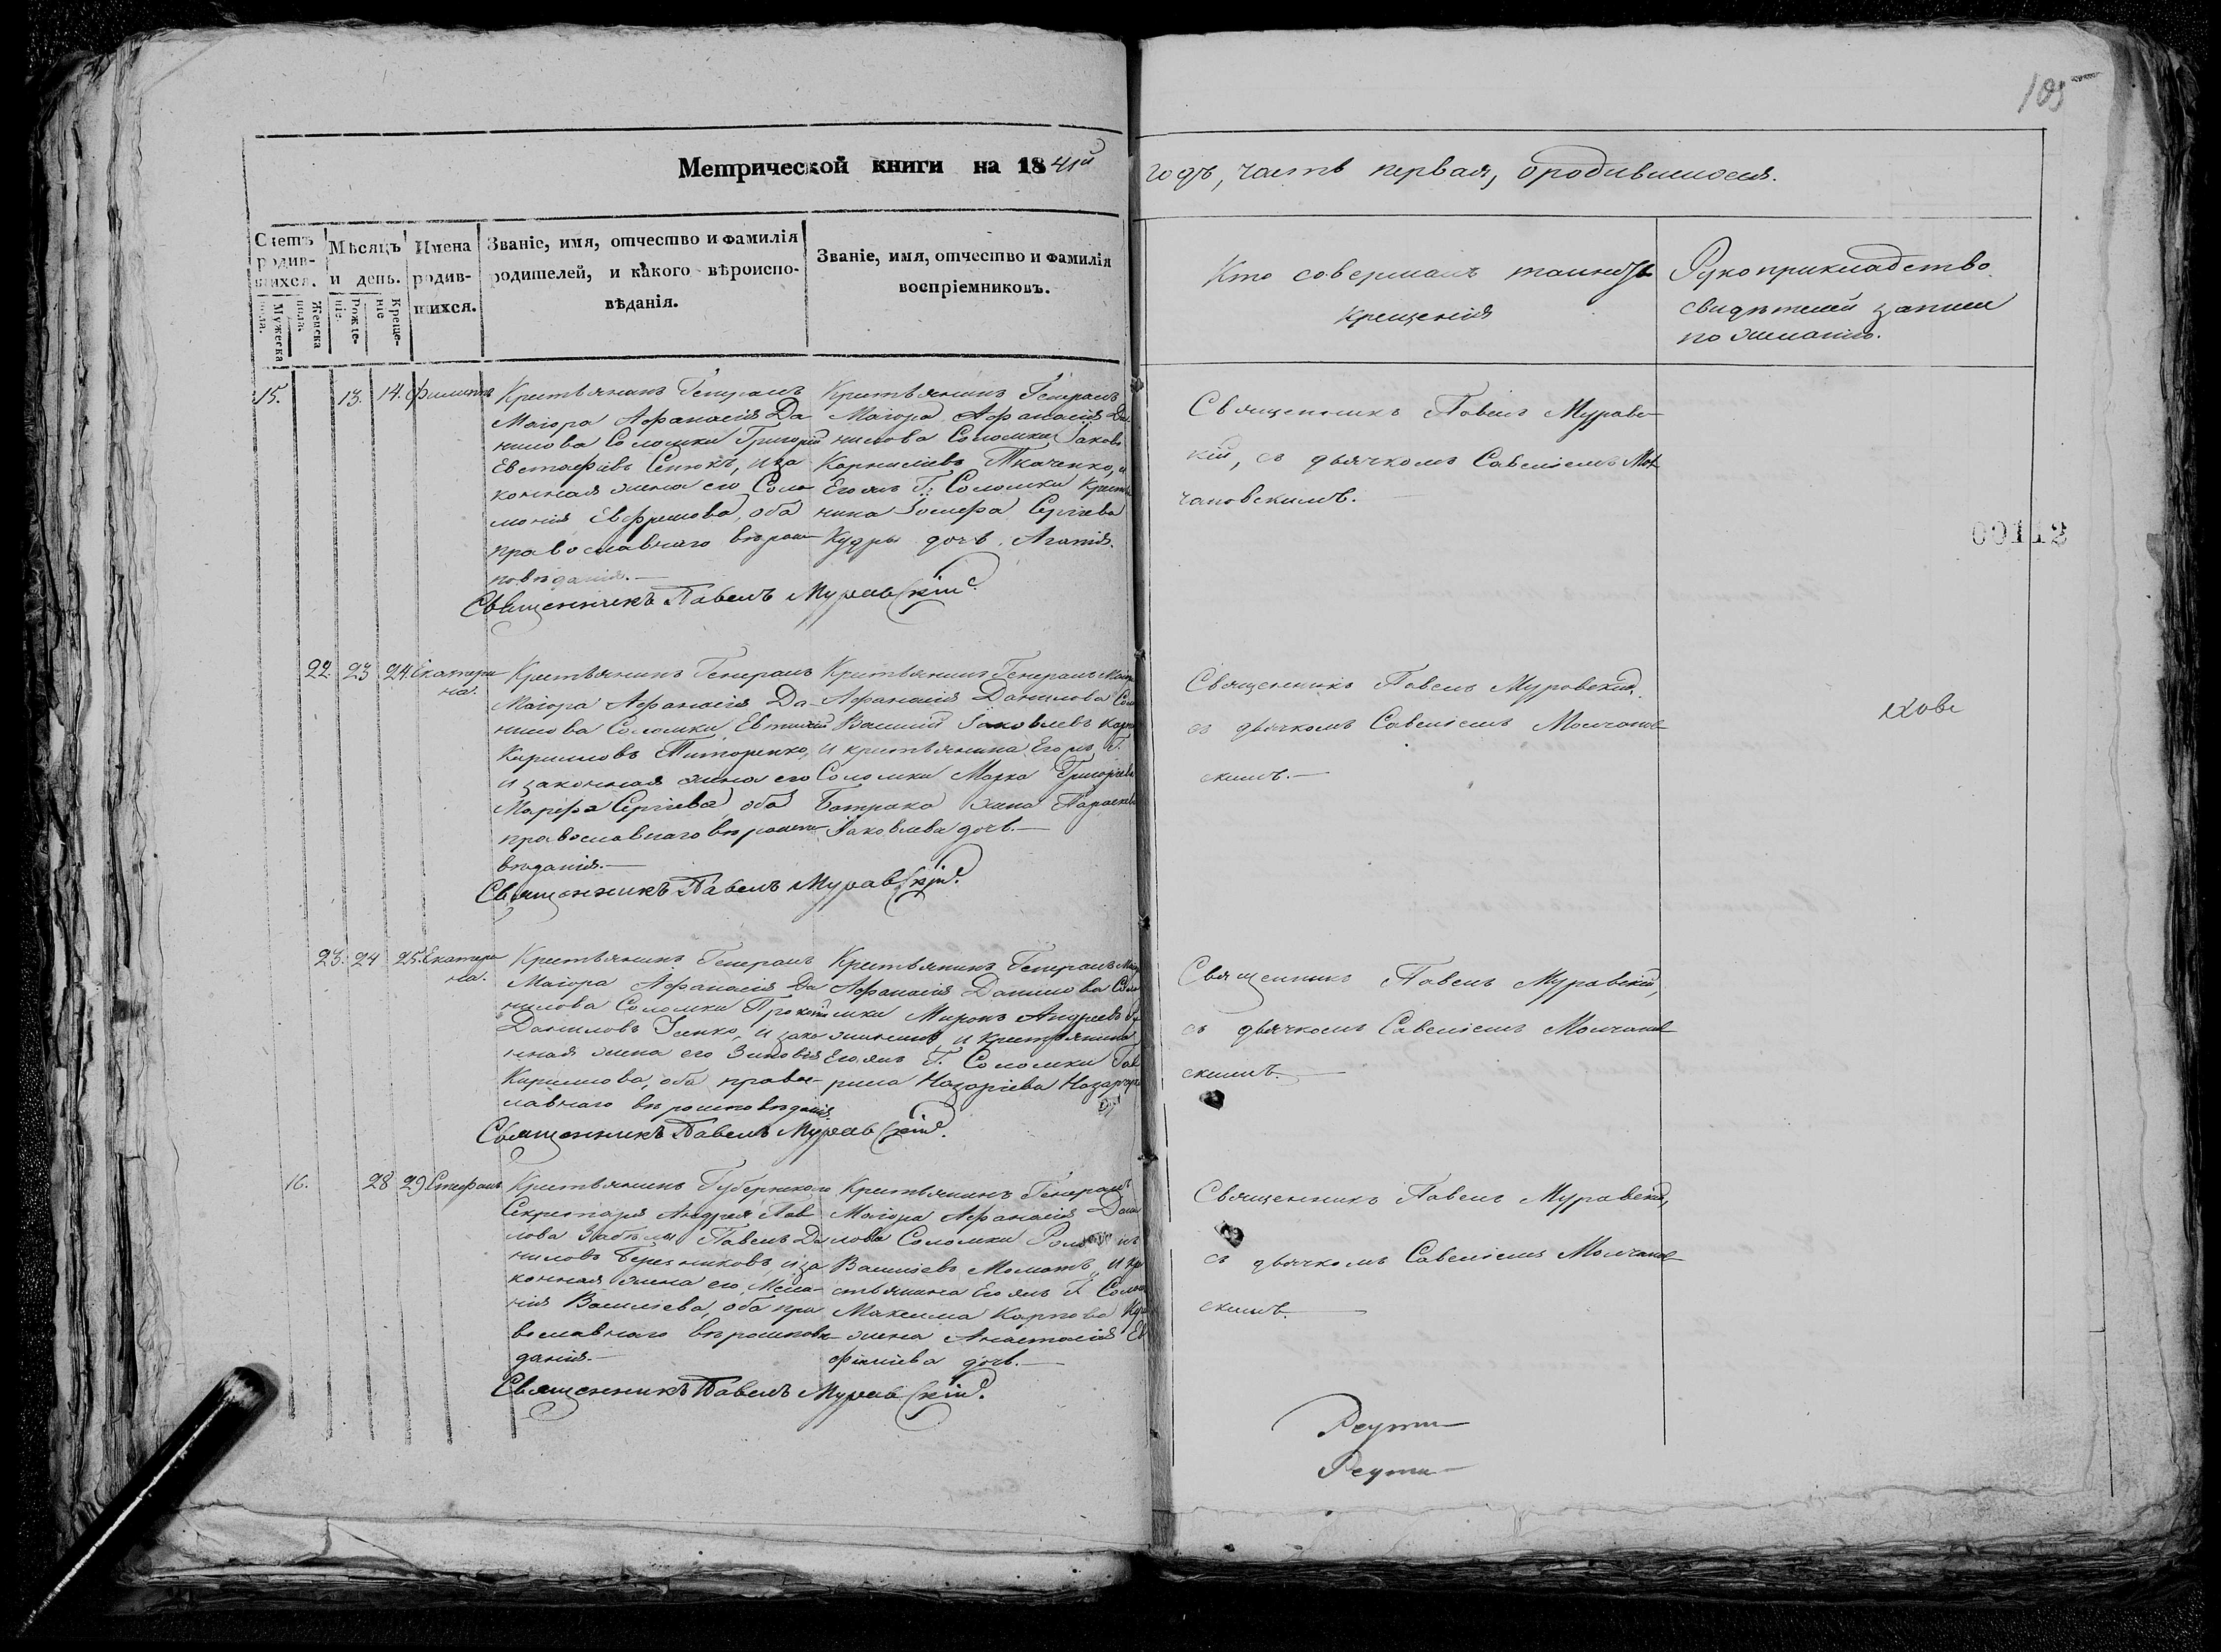 105
Метрической книги на 1841й
годъ, часть первая, о родившихся.
Счетъ родив-
шихся.
Мужеска
пола.
Женска
пола.
Мѣсяцъ
и день.
Рожде-
ніе.
Креще-
ніе
Имена
родив-
шихся.
Званіе, имя, отчество и фамилія
родителей, и какого вѣроиспо-
вѣданія.
Званіе, имя, отчество и фамилія
воспріемниковъ.
Кто совершалъ таинство
крещенія
Рукоприкладство
свидѣтелей записи
по желанію.
15.
13.
14.
Филиппъ
Крестьянинъ Генералъ
Маіора Афанасія Да-
нилова Соломки Григорій
Евстафіевъ Сенюкъ, и за
конная жена его Соло
монія Ефремова, оба
православнаго вѣроис
повѣданія.
Крестьянинъ Генералъ
Маіора Афанасія Да
нилова Соломки Іаковъ
Корниліевъ Ткаченко, и
Егожъ Г. Соломки Кресть
нина Іосифа Сергіева
Кудры дочь Агапія.
Священникъ Павелъ Муравскій.
Священникъ Павелъ Муравс-
кій, съ дьячкомъ Савеліемъ Мол
чановскимъ.
00112
22.
23
24.
Екатери
на.
Крестьянинъ Генералъ
Маіора Афанасія Да-
нилова Соломки Евтихій
Кирилловъ Титоренко,
и законная жена его
Марфа Сергіева, оба
православнаго вѣроиспо
вѣданія.
Крестьянинъ Генералъ Маіора
Афанасія Данилова Соло
Василій Іаковлевъ
и крестьянина Егожъ Г.
Соломки Марка Григоріева
Батрака жена Параскева
Іаковлева дочь.
Священникъ Павелъ Муравскій.
Священникъ Павелъ Муравскій,
съ дьячкомъ Савеліемъ Молчанов
скимъ.
23.
24
25.
Екатери
на.
Крестьянинъ Генералъ
Маіора Афанасія Да
нилова Соломки Прокопій
Даниловъ Іенко, и зако
нная жена его Зиновія
Кириллова, оба право-
славнаго вѣроисповѣданія.
Крестьянинъ Генералъ Маіо
Афанасія Данилова Соло
мки Миронъ Андреевъ
и крестьянина
Егожъ Г. Соломки Гав
рила Назаріева
Священникъ Павелъ Муравскій.
Священникъ Павелъ Муравскій,
съ дьячкомъ Савеліемъ Молчанов
скимъ.
16.
28
29
Стефанъ
Крестьянинъ Губернскаго
Секретаря Андрея Пав
лова Забѣлы Павелъ Да
ниловъ Березниковъ, и за
конная жена его Мела-
нія Василіева, оба пра
вославнаго вѣроисповѣ
данія.
Крестьянинъ Генералъ
Маіора Афанасія Дани
лова Соломки
Василіевъ Моматъ, и кре
стьянина Егожъ Г. Солом
Максима Карпова
жена Анастасія Ев
фиміева дочь.
Священникъ Павелъ Муравскій.
Священникъ Павелъ Муравскій,
съ дьячкомъ Савеліемъ Молчанов
скимъ.